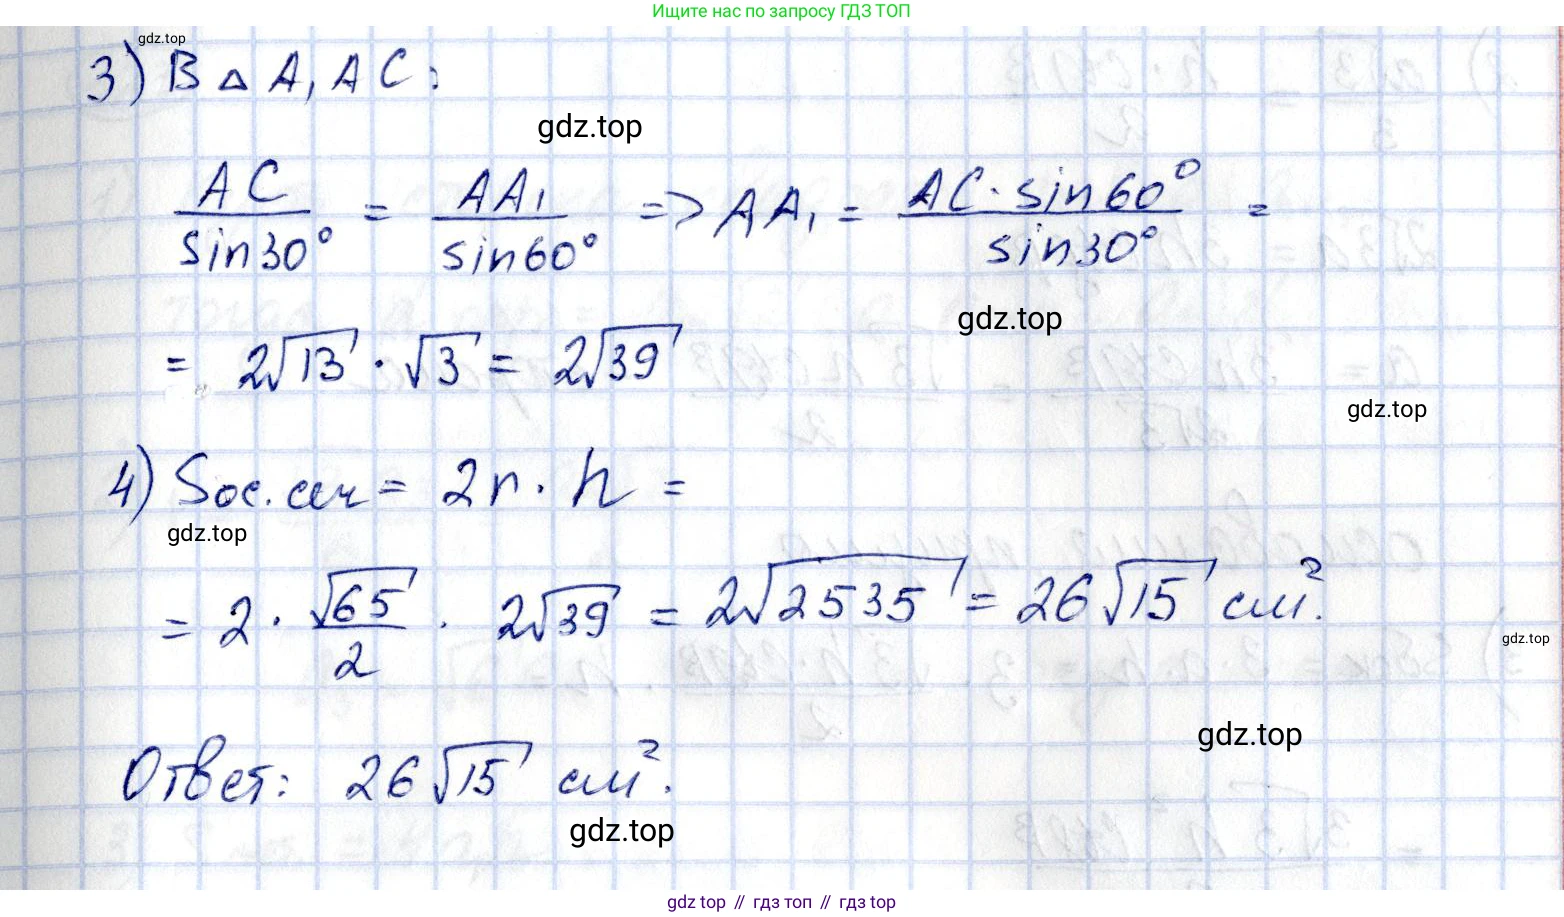 Ищите нас по запросу ГДЗ ТОП
gdz.top
3) В △ A₁AC:
gdz.top
AC/sin30° = AA₁/sin60° => AA₁ = AC·sin60°/sin30° =
gdz.top
= 2√13 · √3 = 2√39
gdz.top
4) Sос.сеч = 2r · h =
gdz.top
= 2 · √65/2 · 2√39 = 2√2535 = 26√15 см².
gdz.top
gdz.top
Ответ: 26√15 см².
gdz.top
gdz.top // гдз топ // гдз top